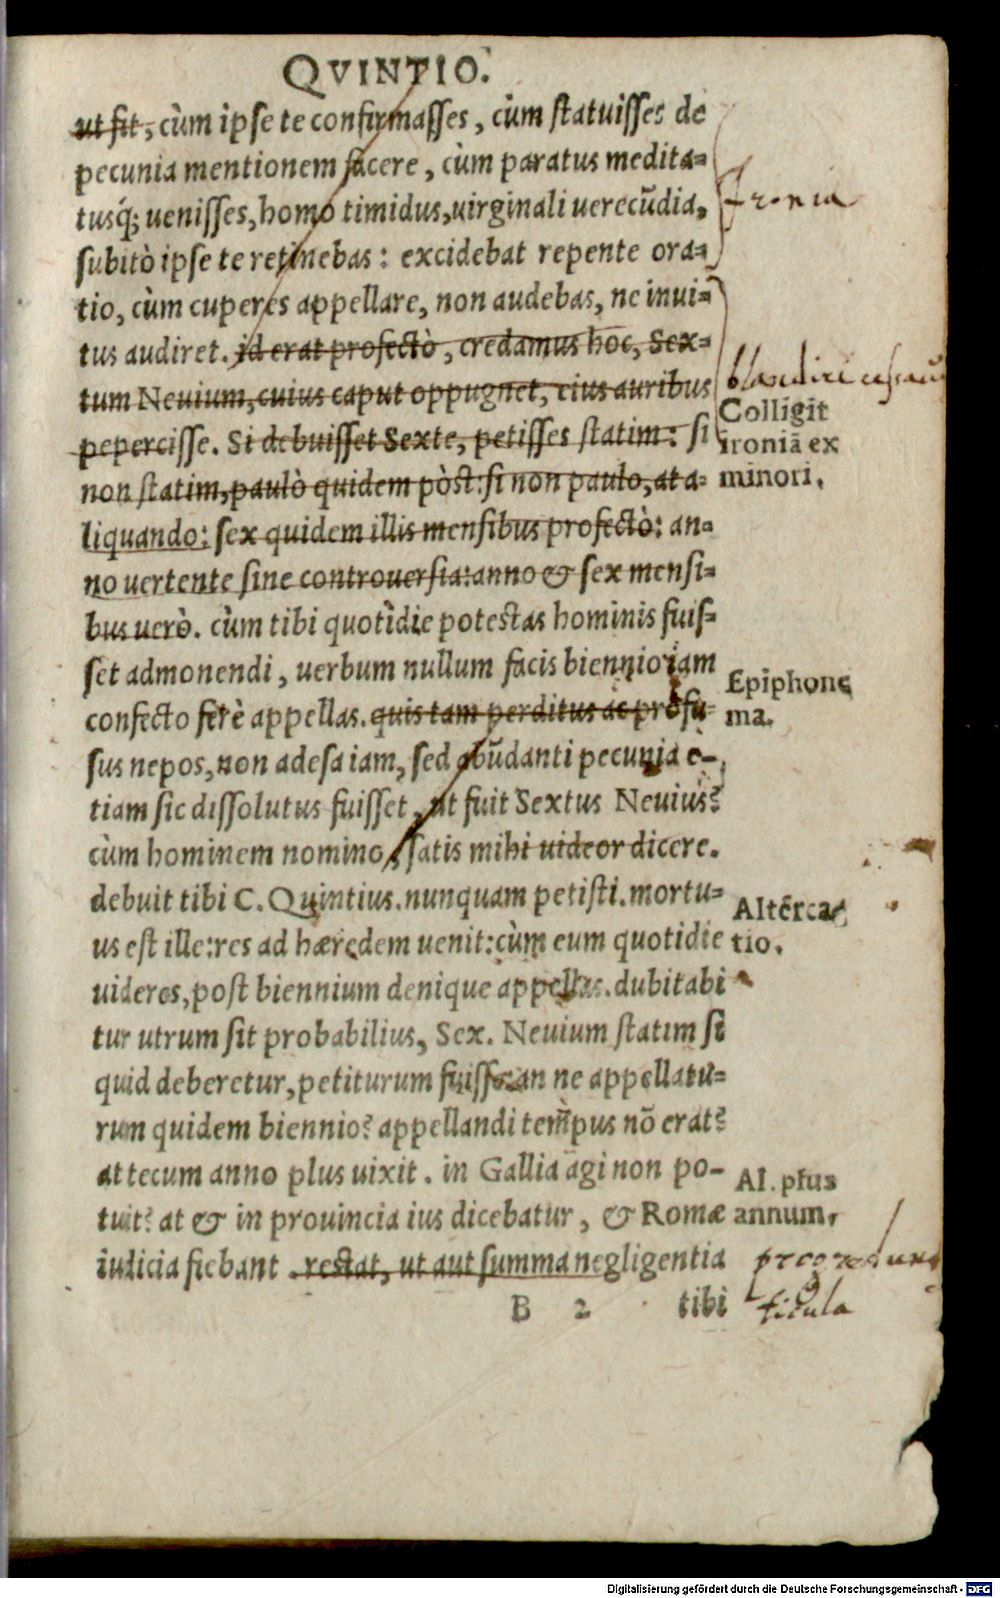 QVINTIO.
ut fit, cùm ipse te confirmasses, cùm statuisses de
pecunia mentionem facere, cùm paratus medita=
tusq́; uenisses, homo timidus, uirginali uerecũdia,
Ironia
subitò ipse te retinebas: excidebat repente ora=
tio, cùm cuperes appellare, non audebas, ne inui=
tus audiret. id erat profectò, credamus hoc, Sex=
tum Neuium, cuius caput oppugnet, eius auribus
pepercisse. Si debuisset Sexte, petisses statim: si
Colligit
ironiã ex
minori.
non statim, paulò quidem pòst: si non paulo, at a=
liquando: sex quidem illis mensibus profectò: an=
no uertente sine controuersia: anno & sex mensi=
bus uerò. cùm tibi quotìdie potestas hominis fuis=
set admonendi, uerbum nullum facis biennio iam
Epiphone
ma.
confecto ferè appellas. quis tam perditus ac profu=
sus nepos, non adesa iam, sed abũdanti pecunia e=
tiam sic dissolutus fuisset, ut fuit Sextus Neuius?
cùm hominem nomino, satis mihi uideor dicere.
debuit tibi C. Quintius. nunquam petisti. mortu=
Altẽrca
tio.
us est ille: res ad hæredem uenit: cùm eum quotidie
uideres, post biennium denique appellas. dubitabi
tur utrum sit probabilius, Sex. Neuium statim si
quid deberetur, petiturum fuisse: an ne appellatu=
rum quidem biennio? appellandi tempus nõ erat?
at tecum anno plus uixit. in Gallia agi non po=
Al. plus
annum.
tuit? at & in prouincia ius dicebatur, & Romæ
iudicia fiebant. restat, ut aut summa negligentia
B 2 tibi
Digitalisierung gefördert durch die Deutsche Forschungsgemeinschaft - DFG